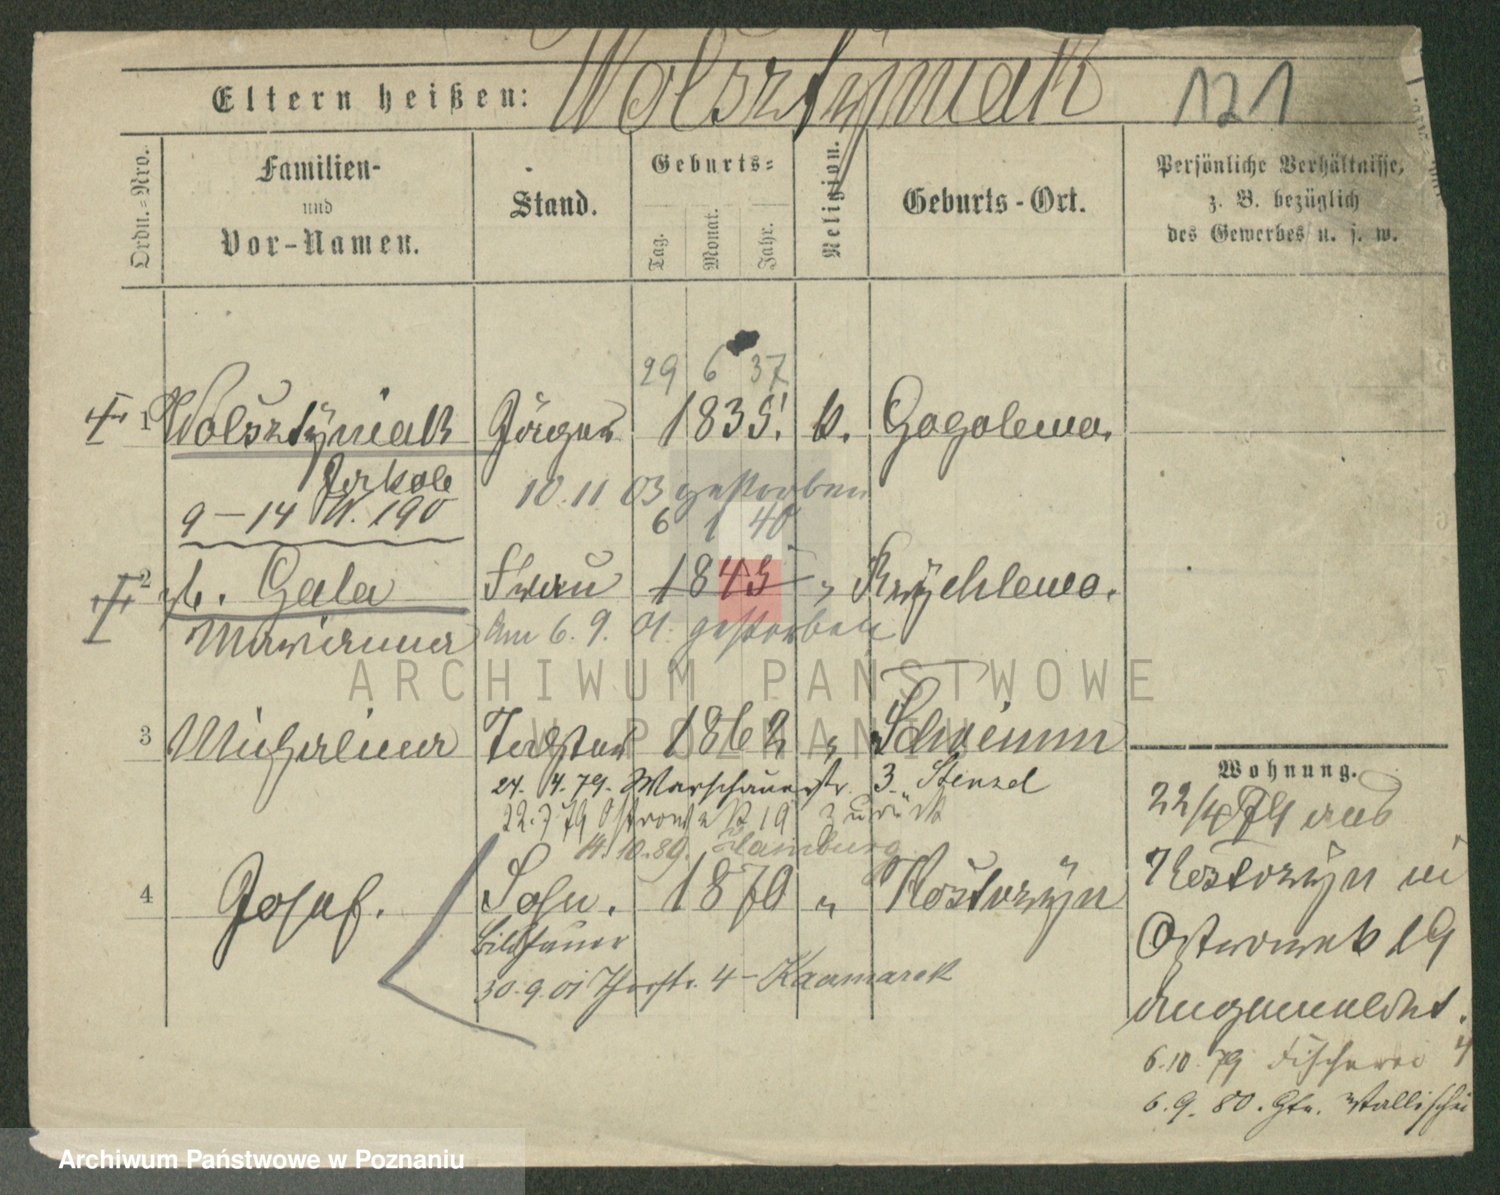 Eltern heißen: Wolsztyniak 121
Ordn.-Nro.
Familien-
und
Vor-Namen.
Stand.
Geburts-
Tag.
Monat.
Jahr.
Religion.
Geburts-Ort.
Persönliche Verhältnisse,
z. B. bezüglich
des Gewerbes u. s. w.
29 6 37
1 Wolsztyniak 1835. k. Gogolewo.
10.11 03 gestorben
9-14 W. 190
6 1 40
2 Gala Frau 1845 " Krychlewo.
Marianna Am 6. 9. 01. gestorben
3 Michalina Tochter 1862 " Schrimm
24. 4. 79. Warschauerstr. 3. Stenzel
22.7.79 Ostrowek 19 zurück
14.10.89. Hamburg
4 Josef. Sohn. 1870 " Kostrzyn
Bildhauer
30.9.01 4 - Kaczmarek
Wohnung.
22/4 79 aus
Kostrzyn in
Ostrowek 19
angemeldet.
6.10.79 Fischerei 4
6.9.80. Gr. Wallischei
ARCHIWUM PAŃSTWOWE
W POZNANIU
Archiwum Państwowe w Poznaniu